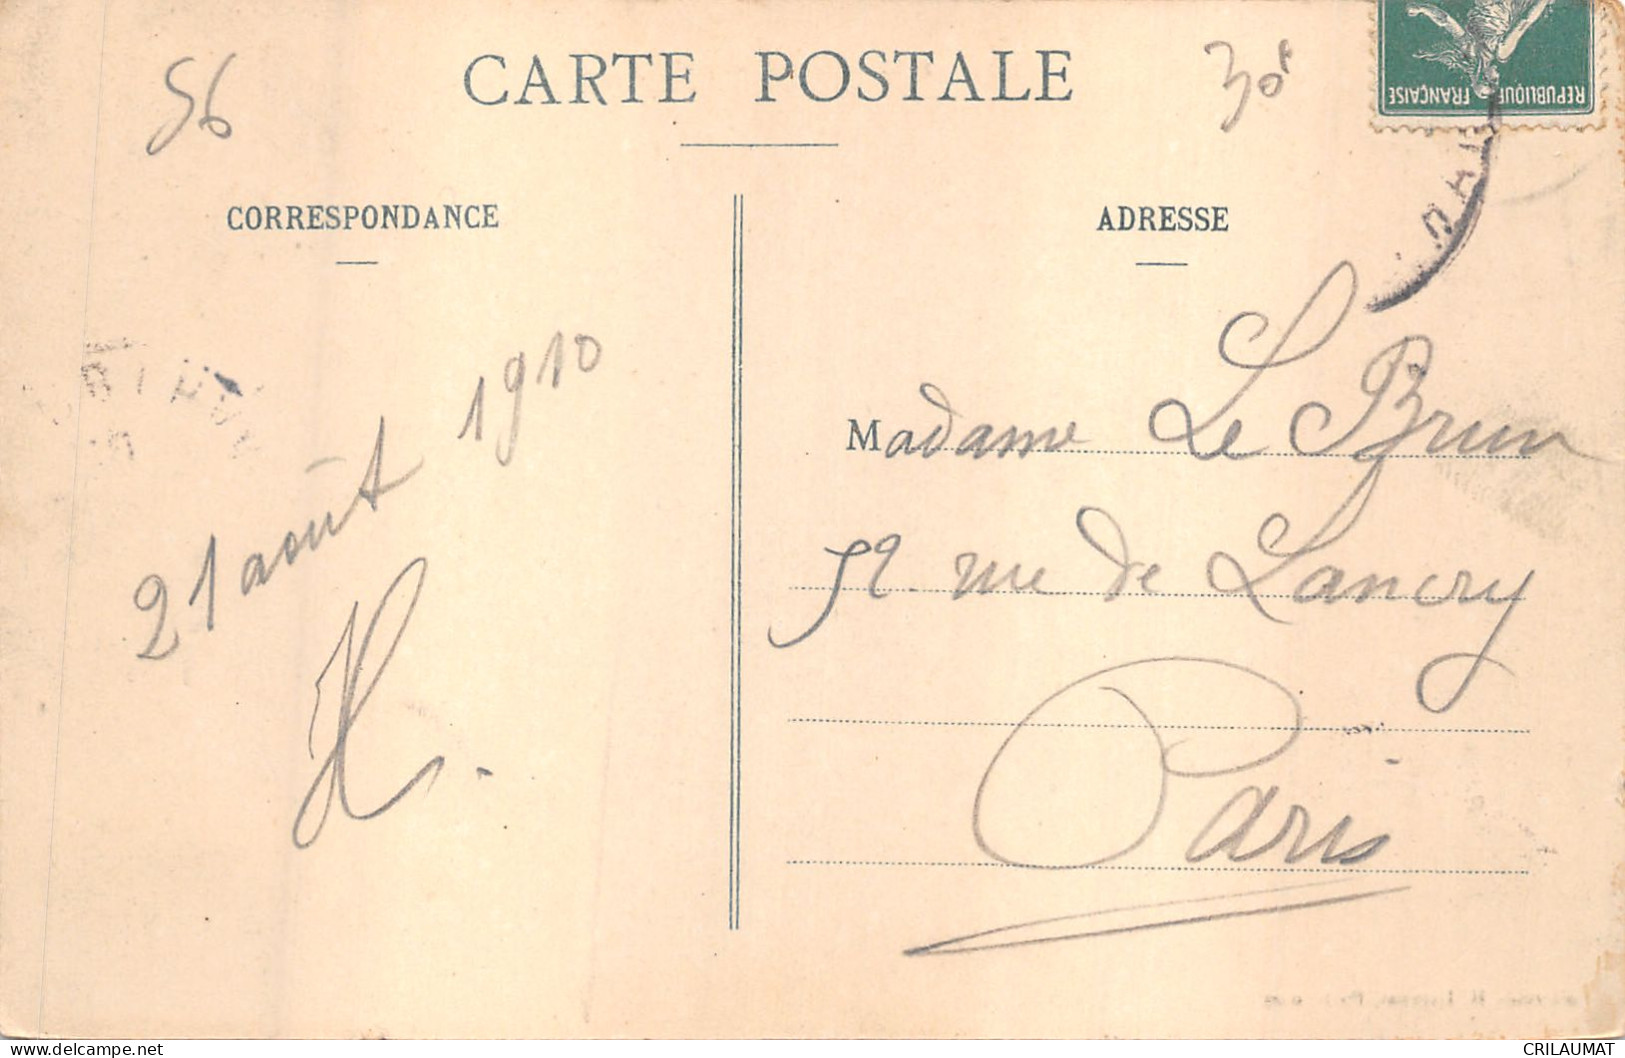 56
CARTE POSTALE
30F
REPUBLIQUE FRANÇAISE
CORRESPONDANCE
ADRESSE
21 août 1910
H.
Madame Le Brun
52 rue de Lancry
Paris
CRILAUMAT